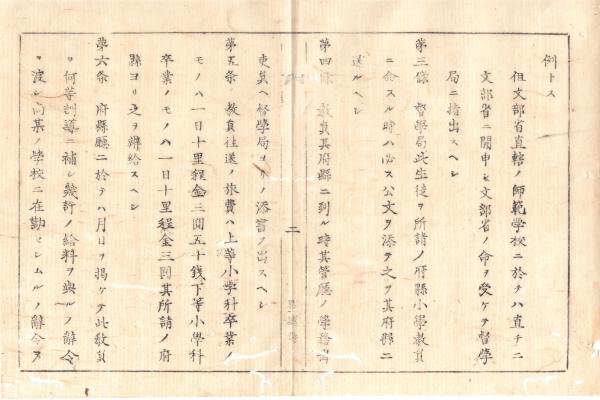 例トス
但文部省直轄ノ師範学校ニ於テハ直チニ
文部省ニ開申シ文部省ノ命ヲ受ケテ督学
局ニ指出スヘシ
第三條 督學局此生徒ヲ所請ノ府縣小學教員
ニ命スル時ハ必ス公文ヲ添テ之ヲ其府縣ニ
送ルヘシ
第四條 教員其府縣ニ到ル時其管廳ノ學務
吏員ヘ督學局ヨリノ添書ヲ出スヘシ
二
第五条 教員往送ノ旅費ハ上等小学科卒業ノ
モノハ一日十里程金三圓五十銭下等小學科
卒業ノモノハ一日十里程金三圓其所請ノ府
縣ヨリ之ヲ辨給スヘシ
第六条 府縣廳ニ於テハ月日ヲ掲ケテ此教員
ヲ何等訓導ニ補シ幾許ノ給料ヲ與ルノ辞令
ヲ渡シ尚某ノ学校ニ在勤セシムルノ辞令ヲ